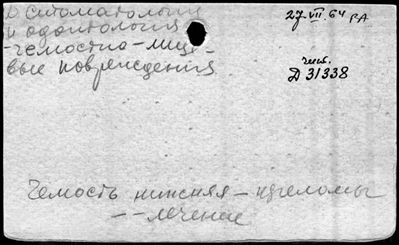 D стоматология
и одонтология
-челюстно-лице-
вые повреждения
27 VII.64 РА
чит.
Д 31338
Челюсть нижняя - переломы
- - лечение